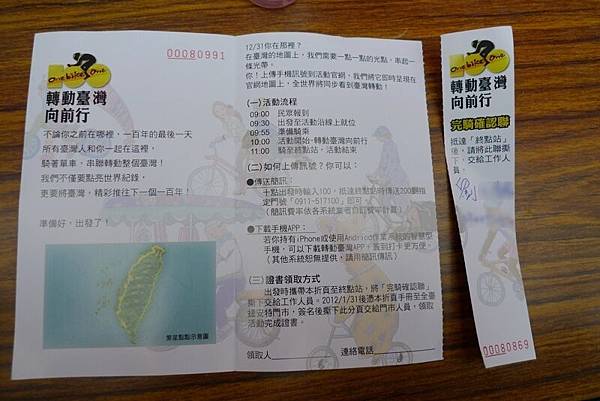 00080991
One bike One
100
轉動臺灣
向前行
不論你之前在哪裡，一百年的最後一天
所有臺灣人和你一起在這裡，
騎著單車、串聯轉動整個臺灣！
我們不僅要點亮世界紀錄，
更要將臺灣，精彩推往下一個一百年！
準備好，出發了！
繁星點點示意圖
12/31你在那裡？
在臺灣的地圖上，我們需要一點一點的光點，串起一
條光帶。
你！上傳手機訊號到活動官網，我們將它即時呈現在
官網地圖上，全世界將同步看到臺灣轉動！
(一)活動流程
09:00 民眾報到
09:30 出發至活動沿線上就位
09:55 準備騎乘
10:00 活動開始-轉動臺灣向前行
11:00 騎至終點站，活動結束
(二)如何上傳訊號？你可以：
●傳送簡訊：
十點出發時輸入100，抵達終點站時傳送200到指
定門號「0911-517100」即可。
(簡訊費率依各系統業者自訂費率計算)
●下載手機APP：
若你持有iPhone或使用Andriod作業系統的智慧型
手機，可以下載轉動臺灣APP，簽到打卡更方便。
(其他系統恕無提供，請用簡訊傳訊)
(三)證書領取方式
出發時攜帶本折頁至終點站，將「完騎確認聯」
撕下交給工作人員。2012/1/31後憑本折頁手冊至全臺
捷安特門市，簽名後撕下此分頁交給門市人員，領取
活動完成證書。
領取人 連絡電話
100
One bike One
轉動臺灣
向前行
完騎確認聯
抵達「終點站」
後，請將此聯撕
下，交給工作人
員。
00080869